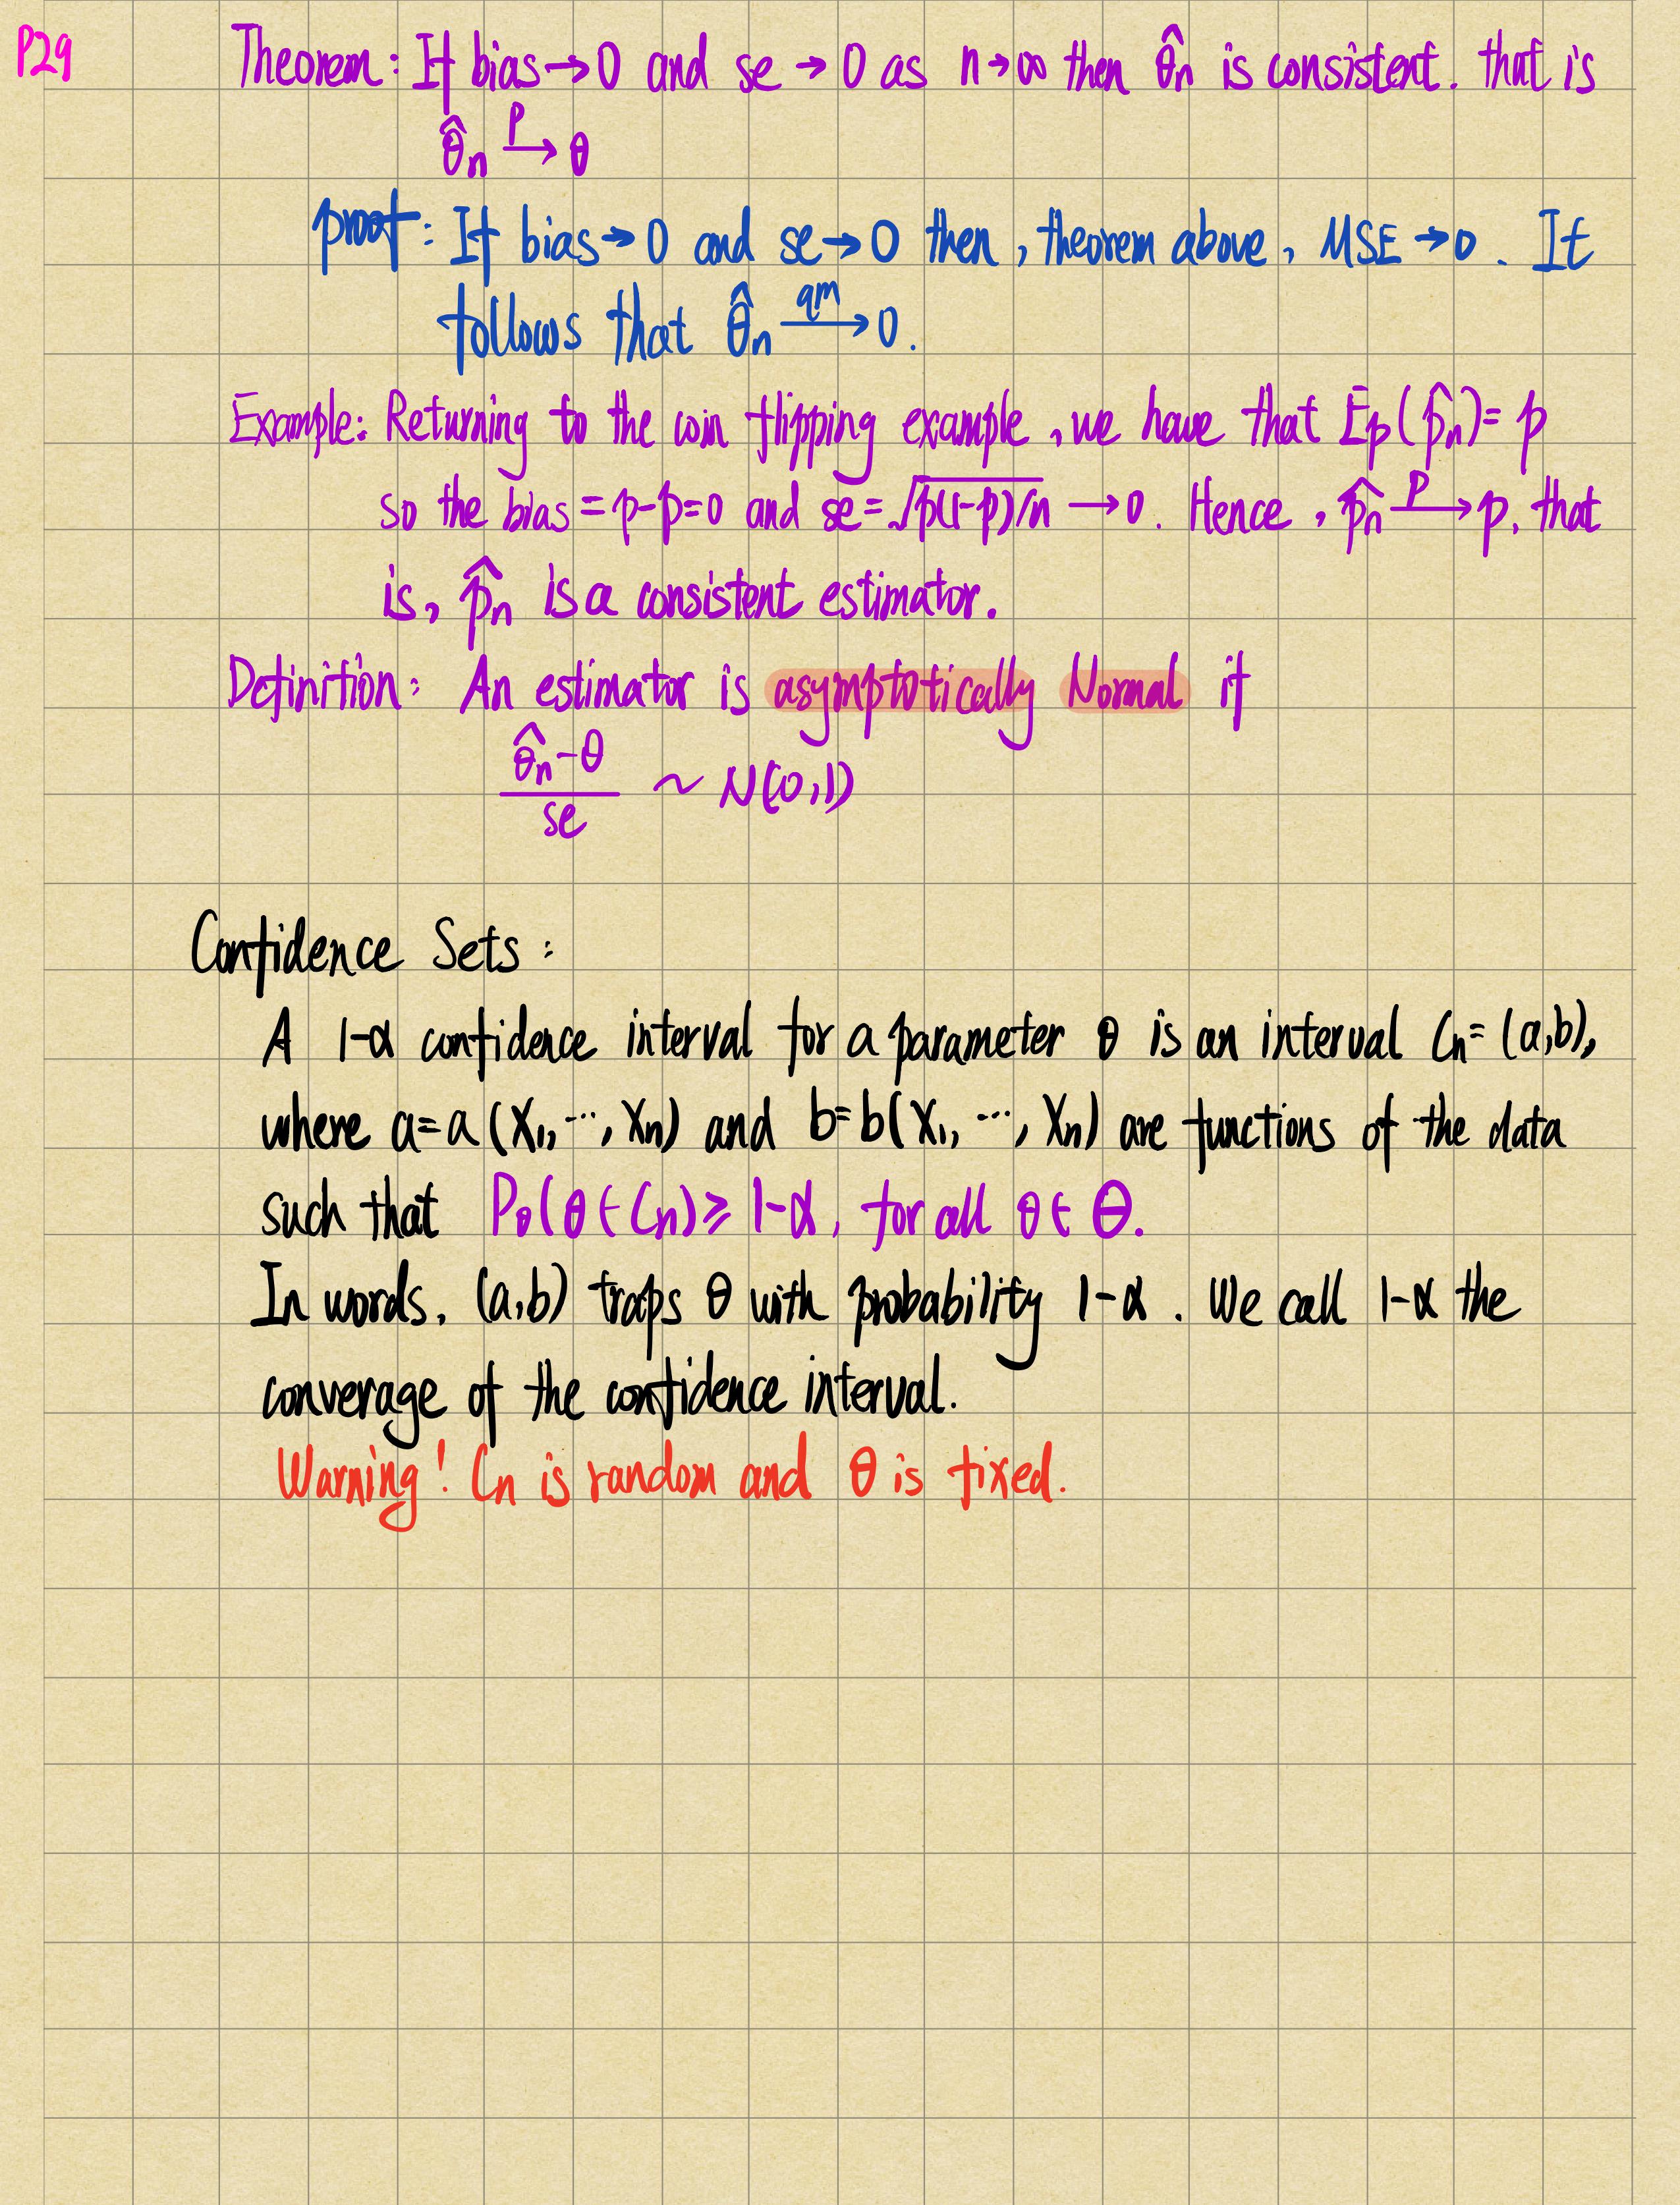 P29
Theorem: If bias→0 and se→0 as n→∞ then θ̂n is consistent. that is
θ̂n →ᴾ θ
proof: If bias→0 and se→0 then, theorem above, MSE→0. It
follows that θ̂n →qm 0.
Example: Returning to the coin flipping example, we have that Ep(p̂n)=p
so the bias=p-p=0 and se=√p(1-p)/n →0. Hence, p̂n →ᴾ p, that
is, p̂n is a consistent estimator.
Definition: An estimator is asymptotically Normal if
(θ̂n-θ)/se ~ N(0,1)
Confidence Sets:
A 1-α confidence interval for a parameter θ is an interval Cn=(a,b),
where a=a(X1,⋯,Xn) and b=b(X1,⋯,Xn) are functions of the data
such that Pθ(θ∈Cn)≥1-α, for all θ∈Θ.
In words, (a,b) traps θ with probability 1-α. We call 1-α the
converage of the confidence interval.
Warning! Cn is random and θ is fixed.